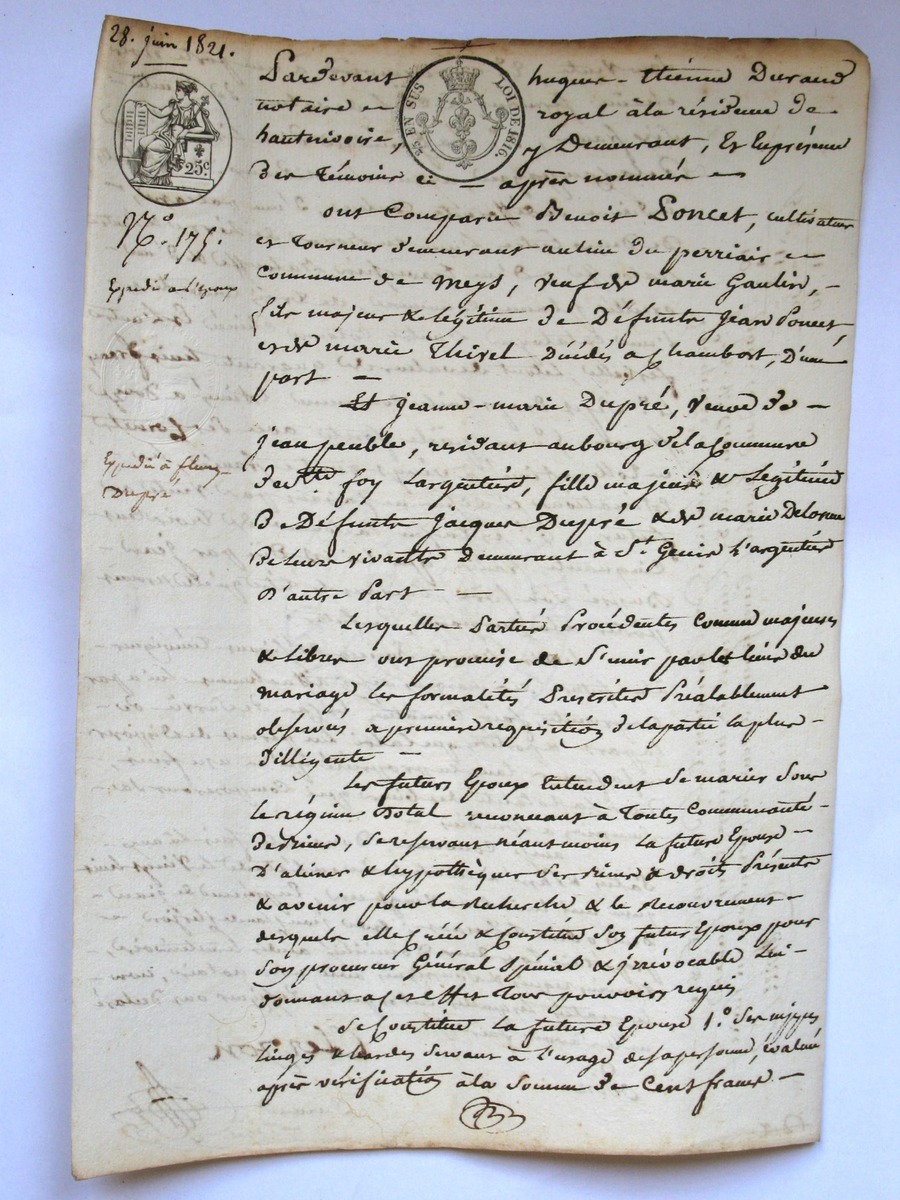 28. juin 1821.
25 EN SUS LOI DE 1816.
25c.
Pardevant hugues-Etienne Durand
notaire royal à la résidence de
hauterivoire, y Demeurant, Et En présence
Des témoins ci - après nommés
ont Comparu Benoit Poncet, cultivateur
et tourneur demeurant au lieu du perriair
Commune de Meys, veuf de marie Gaulin,
fils majeur & légitime de Défunts Jean Poncet
et de marie Thivel Décédés a Chambost, D'une
part
N.° 175.
Expédié a l'Epoux
Expédié à fleury
Dupré
Et jeanne-marie Dupré, veuve de
jean peuble, residant au bourg de la Commune
de Ste foy Largentière, fille majeure & Légitime
De Défunts Jacques Dupré & de marie Delorme
De leurs vivants Demeurant à St Genis L'argentière
D'autre Part
Lesquelles Parties Procédentes Comme majeures
& Libres ont promise de S'unir par les liens du
mariage, les formalités Prescrites Préalablement
observées a première requisition de la partie la plus
dilligente
Les futurs Epoux Entendent Se marier Sous
Le régime Dotal renoncant à Toutes Communauté
De biens, Se reservant néant moins La future Epouse
D'aliener & hypothèquer Ses biens & droits Présents
& avenir pour la Recherche & le Recouvrement
desquels elle Créée & Constitue Son futur Epoux pour
Son procureur Général Spécial & irrévocable Lui
donnant a Cet effet Tous pouvoirs requis
Se Constitue La future Epouse 1.° Ses nippes
linges & hardes Servant à L'usage de sa personne, évalués
après vérification à la Somme de Cent francs